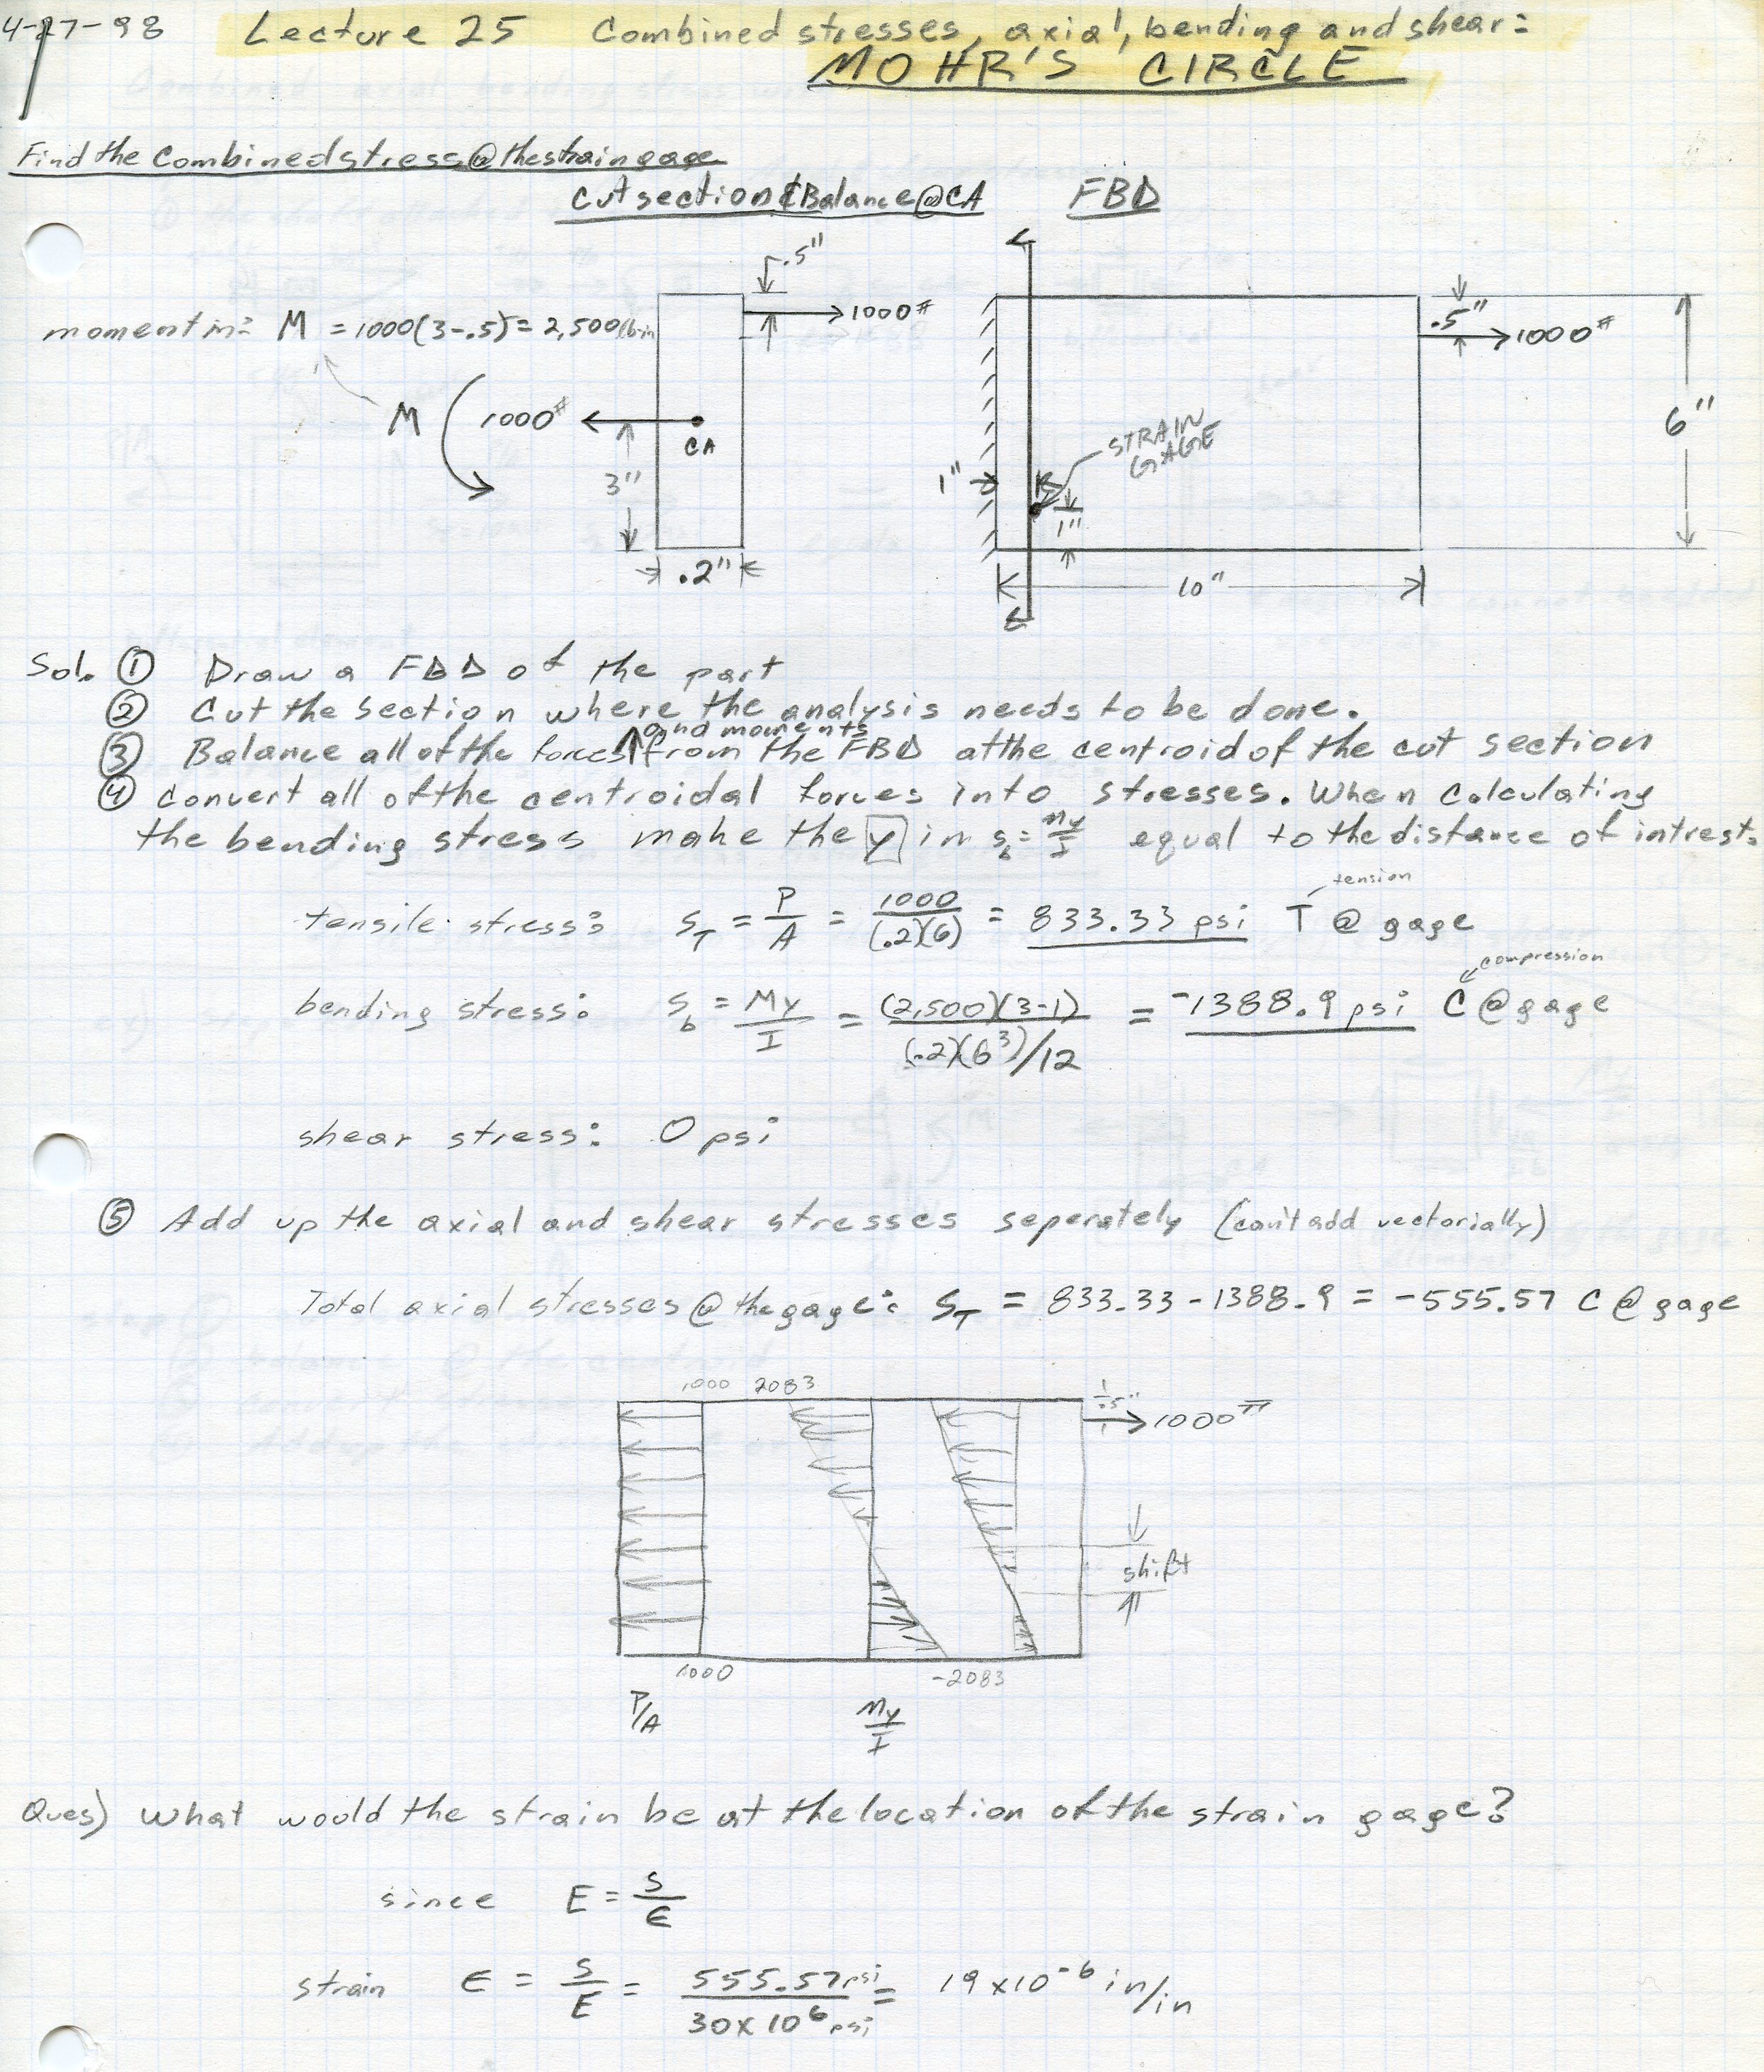 4-27-98 Lecture 25 Combined stresses, axial, bending and shear:
MOHR'S CIRCLE
Find the combined stress @ the strain gage
cut section & Balance @ CA FBD
.5"
1000#
.5"
1000#
moment in: M = 1000(3-.5) = 2,500 lb-in
M 1000#
CA
3"
.2"
STRAIN
GAGE
1"
1"
6"
10"
Sol. ① Draw a FBD of the part
② Cut the section where the analysis needs to be done.
and moments
③ Balance all of the forces from the FBD at the centroid of the cut section
④ convert all of the centroidal forces into stresses. When calculating
the bending stress make the y in s_b = My/I equal to the distance of intrest.
tension
tensile stress: S_T = P/A = 1000/(.2)(6) = 833.33 psi T @ gage
compression
bending stress: S_b = My/I = (2,500)(3-1)/(.2)(6³)/12 = -1388.9 psi C @ gage
shear stress: 0 psi
⑤ Add up the axial and shear stresses seperately (can't add vectorially)
Total axial stresses @ the gage: S_T = 833.33 - 1388.9 = -555.57 C @ gage
1000 2083
.5"
1000#
shift
1000 -2083
P/A My/I
Ques) What would the strain be at the location of the strain gage?
since E = S/ε
strain ε = S/E = 555.57 psi/30 x 10⁶ psi = 19 x 10⁻⁶ in/in